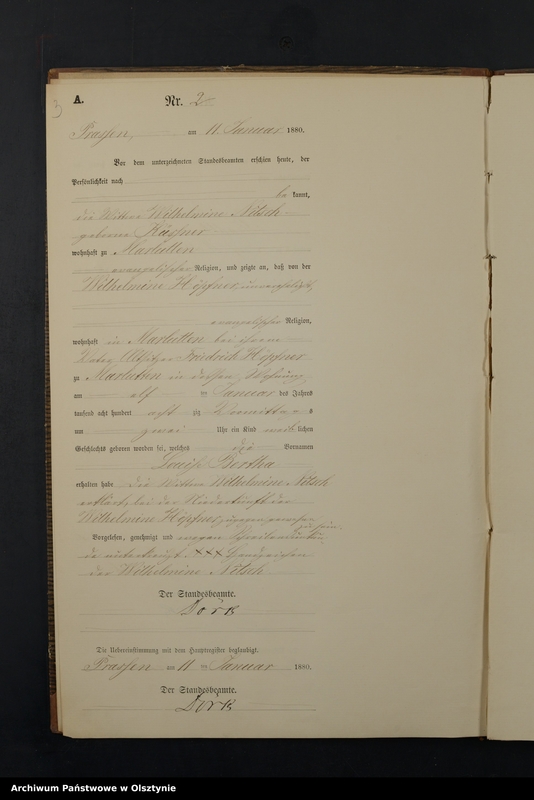 A. Nr. 2
Prassen, am 11. Januar 1880.
Vor dem unterzeichneten Standesbeamten erschien heute, der
Persönlichkeit nach
be kannt,
die Wittwe Wilhelmine Nitsch
geborene
wohnhaft zu Marlutten
evangelischer Religion, und zeigte an, daß von der
Wilhelmine Höpfner, unverehelicht,
evangelischer Religion,
wohnhaft in Marlutten bei ihrem
Vater Altsitzer Friedrich Höpfner
zu Marlutten in dessen Wohnung
am elf ten Januar des Jahres
tausend acht hundert acht zig Vormittags
um zwei Uhr ein Kind weiblichen
Geschlechts geboren worden sei, welches die Vornamen
Louise Bertha
erhalten habe die Wittwe Wilhelmine Nitsch
erklärte, bei der Niederkunft der
Wilhelmine Höpfner, zugegen gewesen
zu sein.
Vorgelesen, genehmigt und wegen
xxx Handzeichen
der Wilhelmine Nitsch
Der Standesbeamte.
Dörk
Die Uebereinstimmung mit dem Hauptregister beglaubigt.
Prassen am 11 ten Januar 1880.
Der Standesbeamte.
Dörk
Archiwum Państwowe w Olsztynie